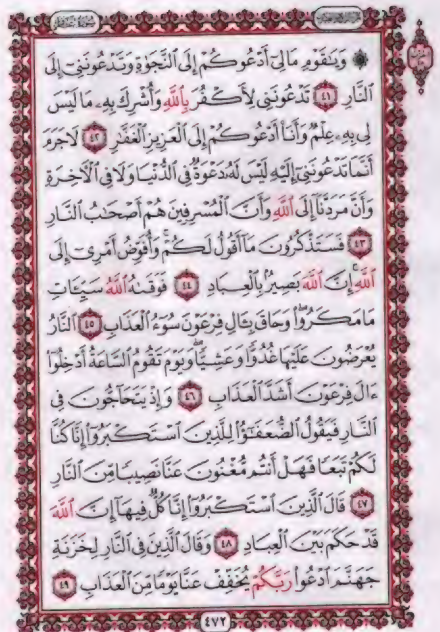 ۞ وَيَٰقَوْمِ مَا لِىٓ أَدْعُوكُمْ إِلَى ٱلنَّجَوٰةِ وَتَدْعُونَنِىٓ إِلَى
ٱلنَّارِ ٤١ تَدْعُونَنِى لِأَكْفُرَ بِٱللَّهِ وَأُشْرِكَ بِهِۦ مَا لَيْسَ
لِى بِهِۦ عِلْمٌ وَأَنَا۠ أَدْعُوكُمْ إِلَى ٱلْعَزِيزِ ٱلْغَفَّٰرِ ٤٢ لَا جَرَمَ
أَنَّمَا تَدْعُونَنِىٓ إِلَيْهِ لَيْسَ لَهُۥ دَعْوَةٌ فِى ٱلدُّنْيَا وَلَا فِى ٱلْءَاخِرَةِ
وَأَنَّ مَرَدَّنَآ إِلَى ٱللَّهِ وَأَنَّ ٱلْمُسْرِفِينَ هُمْ أَصْحَٰبُ ٱلنَّارِ
٤٣ فَسَتَذْكُرُونَ مَآ أَقُولُ لَكُمْ ۚ وَأُفَوِّضُ أَمْرِىٓ إِلَى
ٱللَّهِ ۚ إِنَّ ٱللَّهَ بَصِيرٌۢ بِٱلْعِبَادِ ٤٤ فَوَقَىٰهُ ٱللَّهُ سَيِّـَٔاتِ
مَا مَكَرُوا۟ ۖ وَحَاقَ بِـَٔالِ فِرْعَوْنَ سُوٓءُ ٱلْعَذَابِ ٤٥ ٱلنَّارُ
يُعْرَضُونَ عَلَيْهَا غُدُوًّا وَعَشِيًّا ۖ وَيَوْمَ تَقُومُ ٱلسَّاعَةُ أَدْخِلُوٓا۟
ءَالَ فِرْعَوْنَ أَشَدَّ ٱلْعَذَابِ ٤٦ وَإِذْ يَتَحَآجُّونَ فِى
ٱلنَّارِ فَيَقُولُ ٱلضُّعَفَٰٓؤُا۟ لِلَّذِينَ ٱسْتَكْبَرُوٓا۟ إِنَّا كُنَّا
لَكُمْ تَبَعًا فَهَلْ أَنتُم مُّغْنُونَ عَنَّا نَصِيبًا مِّنَ ٱلنَّارِ
٤٧ قَالَ ٱلَّذِينَ ٱسْتَكْبَرُوٓا۟ إِنَّا كُلٌّ فِيهَآ إِنَّ ٱللَّهَ
قَدْ حَكَمَ بَيْنَ ٱلْعِبَادِ ٤٨ وَقَالَ ٱلَّذِينَ فِى ٱلنَّارِ لِخَزَنَةِ
جَهَنَّمَ ٱدْعُوا۟ رَبَّكُمْ يُخَفِّفْ عَنَّا يَوْمًا مِّنَ ٱلْعَذَابِ ٤٩
٤٧٢